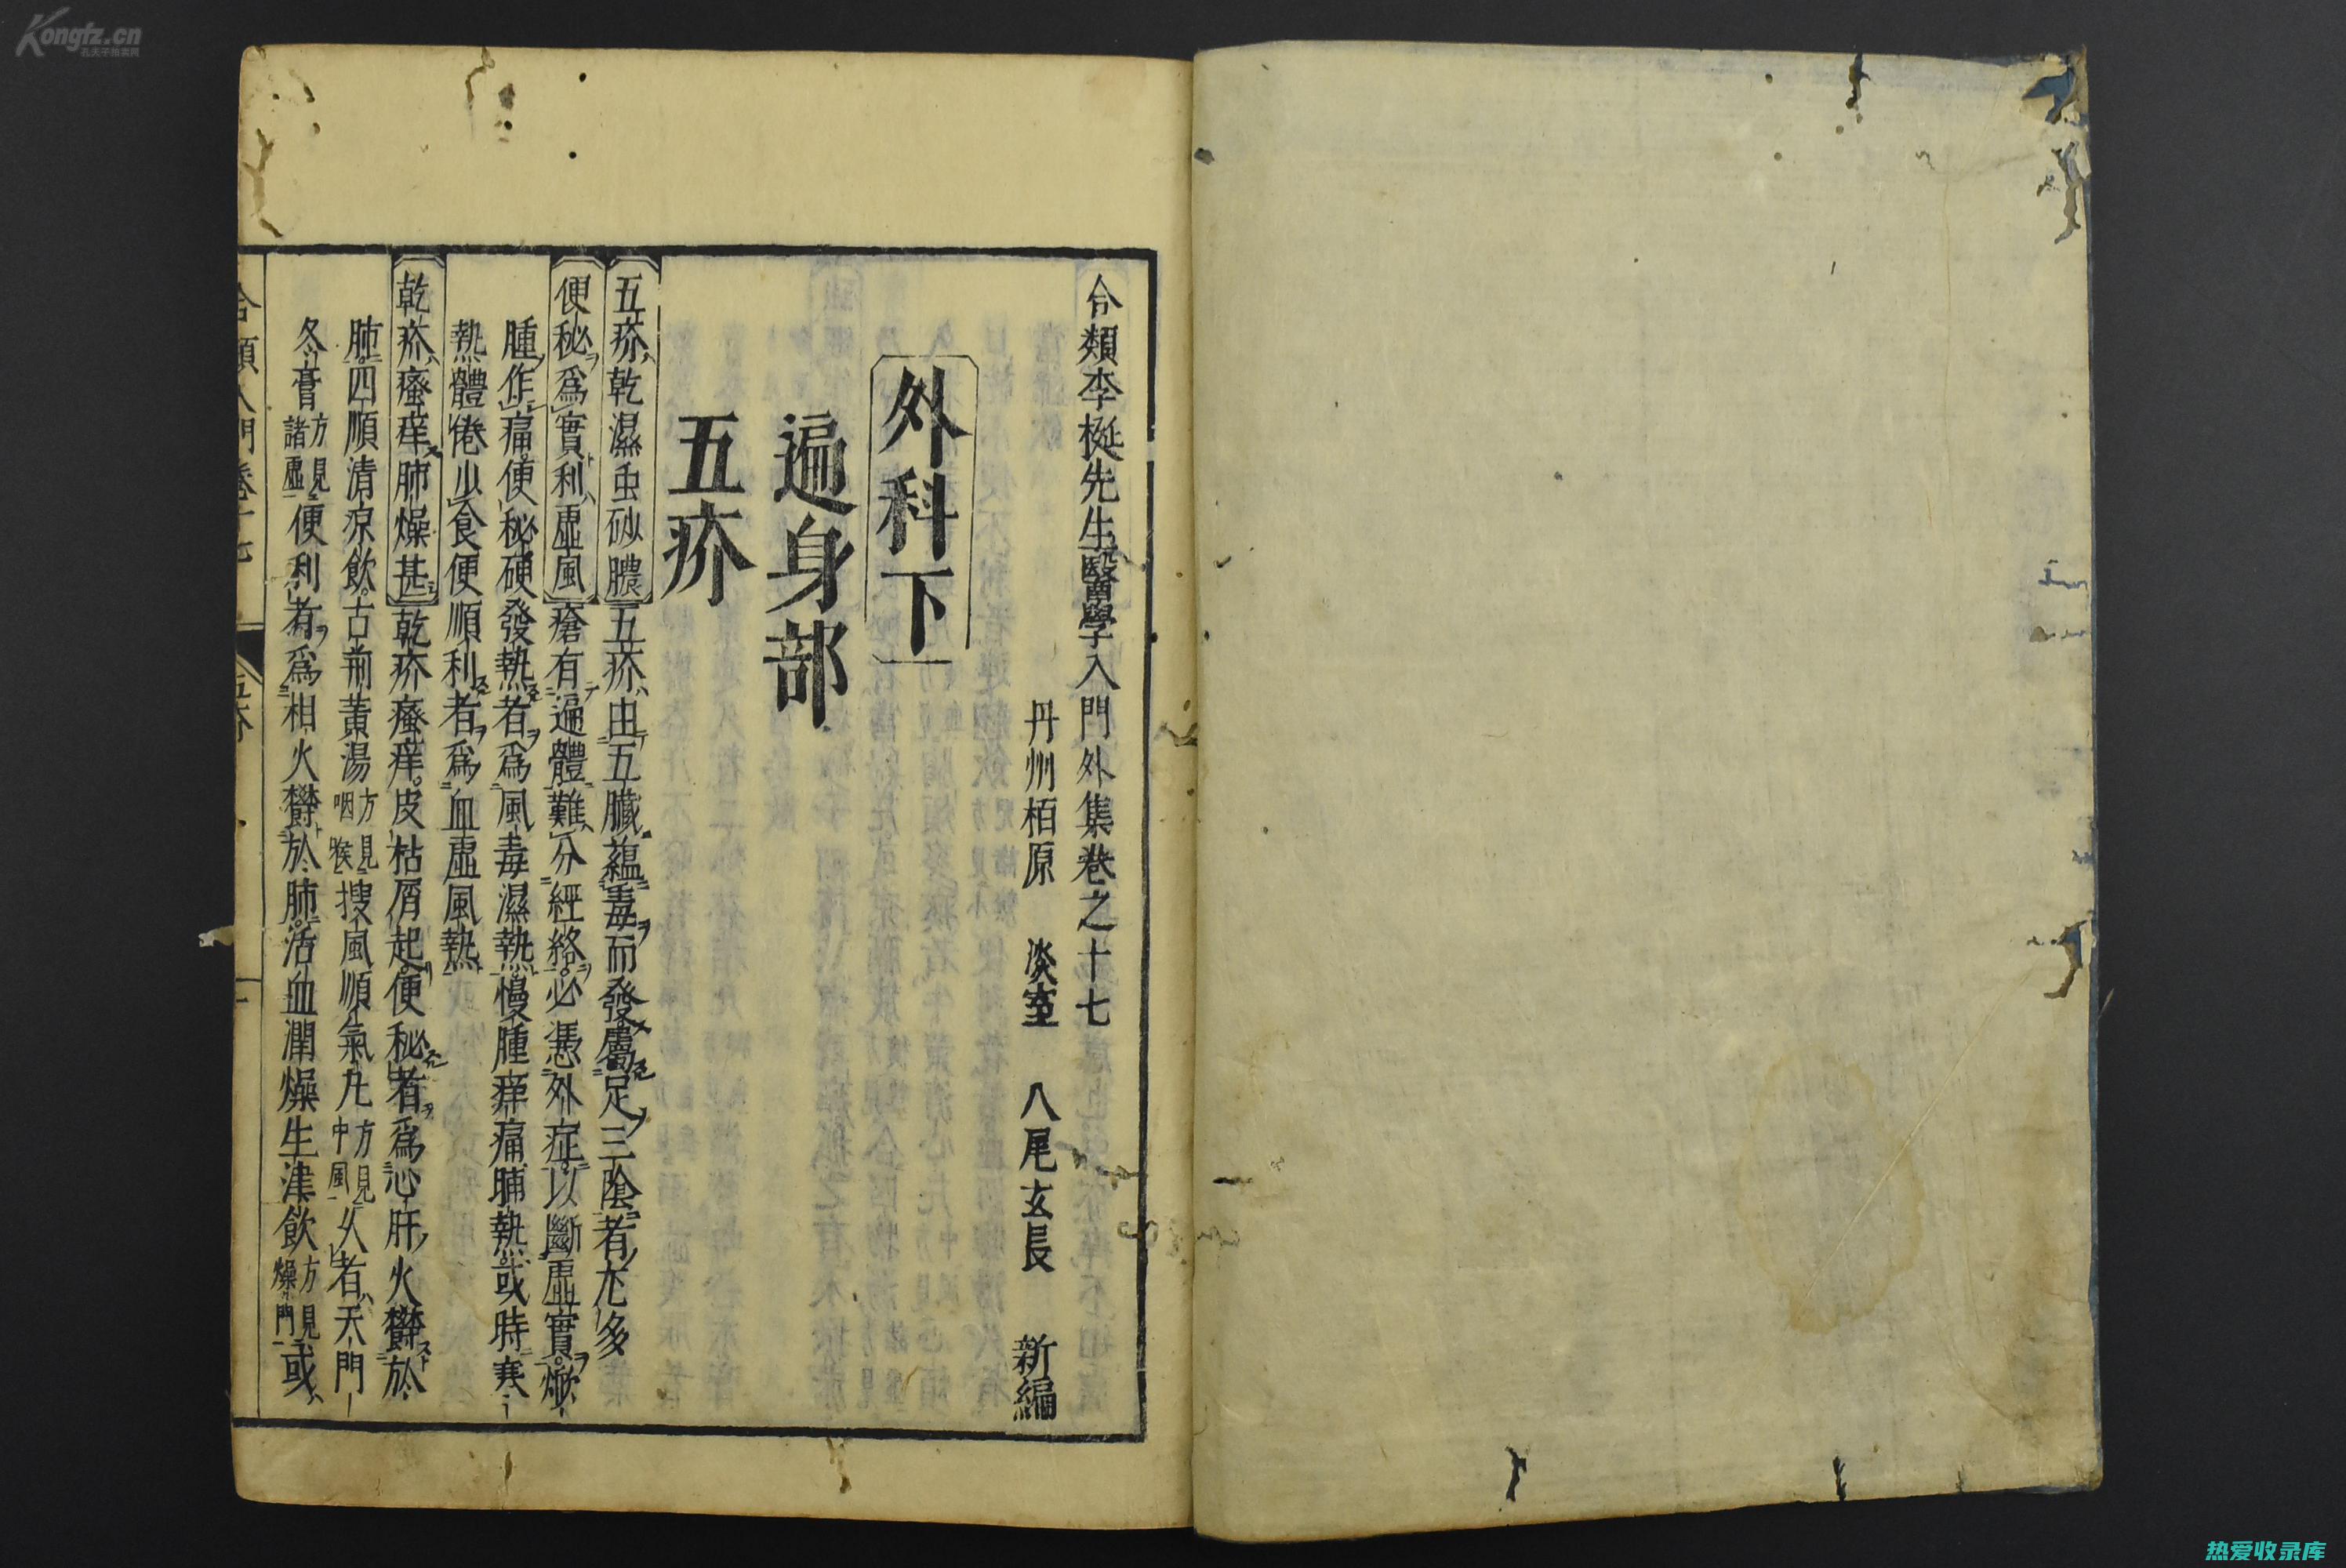 合類李梴先生醫學入門外集卷之十七
丹州栢原 淡室 八尾玄長 新編
外科下
遍身部
五疥
五疥乾濕虫砂膿五疥由五臟蘊毒而發屬足三陰者尤多
便秘爲實利虛風瘡有遍體難分經絡必憑外症以斷虛實焮
腫作痛便秘硬發熱者爲風毒濕熱慢腫痒痛晡熱或時寒
熱體倦少食便順利者爲血虛風熱
乾疥瘙痒肺燥甚乾疥瘙痒皮枯屑起便秘者爲心肝火欝於
肺四順清凉飲古荊黃湯方見咽喉搜風順氣丸方見中風久者天門
冬膏方見諸虛便利者爲相火欝於肺活血潤燥生津飲方見燥門或
合類入門卷十七 五疥 一
Kongfz.cn
孔夫子拍卖网
热爱收录库